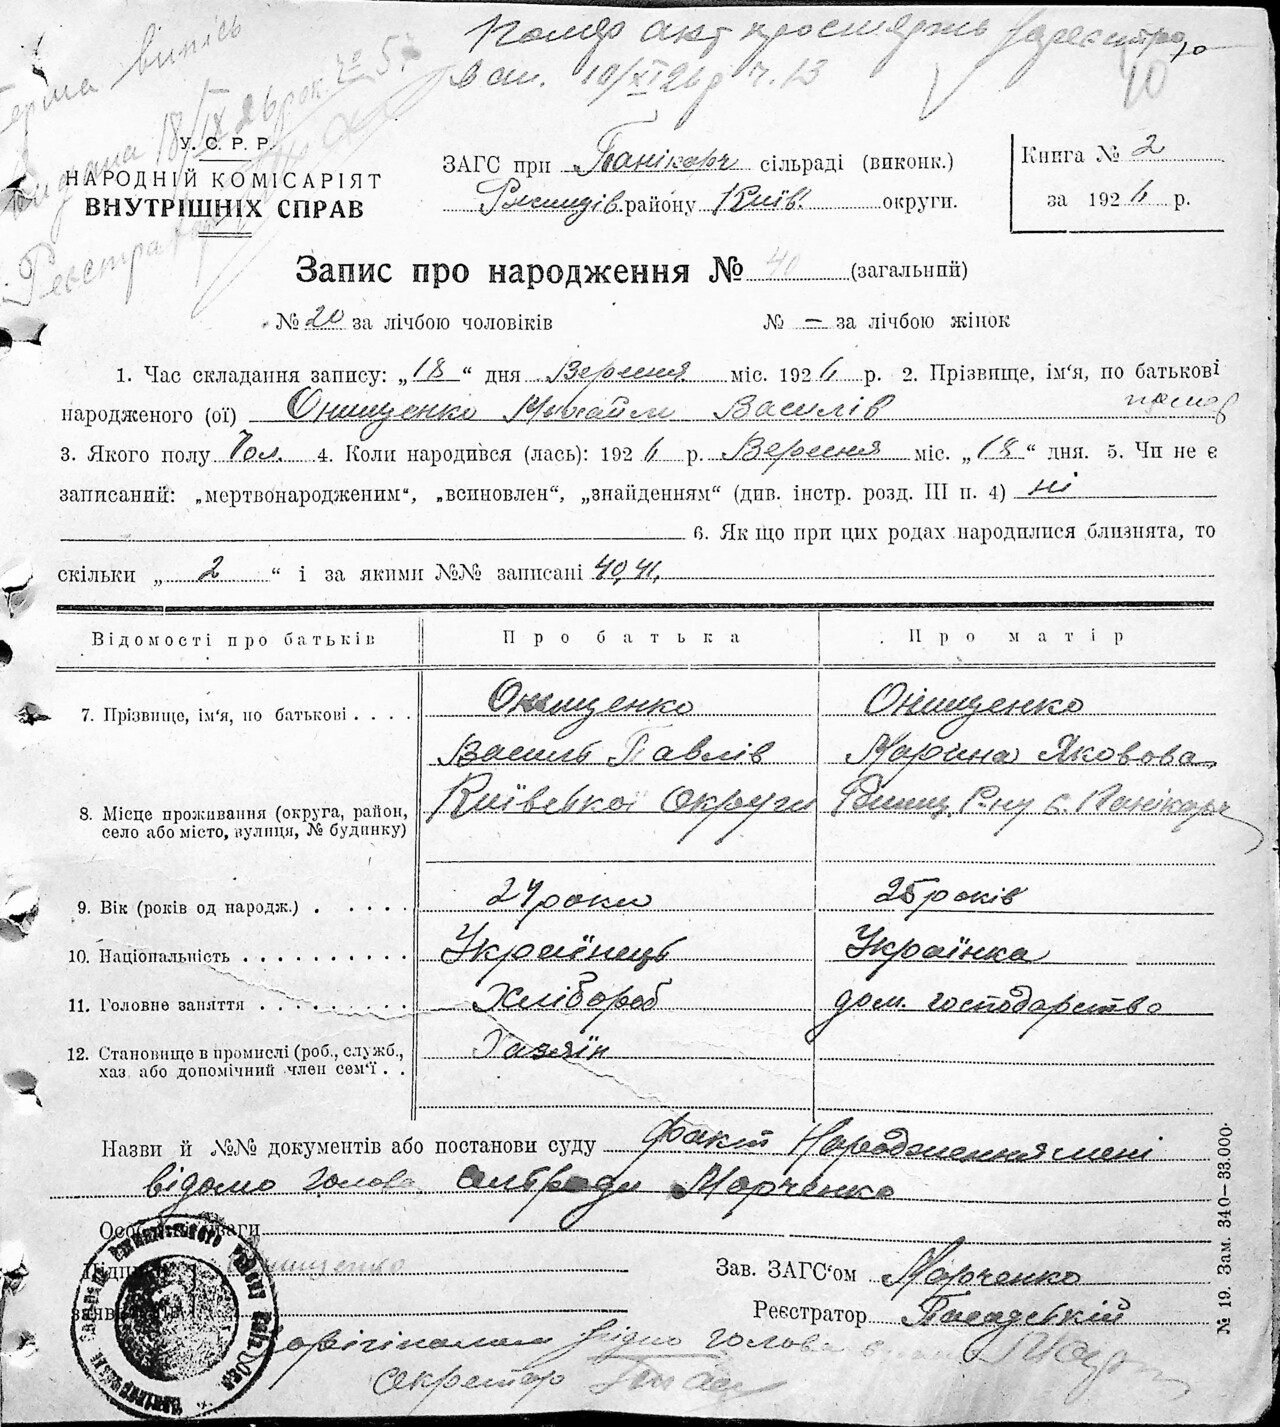 Помер акт про смерть зареєстро
ван. 10/XI 26р ч. 13
10
Перша випись
видана 18/IX 26 рок. за № 5
Реєстратор
У. С. Р. Р.
НАРОДНІЙ КОМІСАРІЯТ
ВНУТРІШНІХ СПРАВ
ЗАГС при Панікарч сільраді (виконк.)
Ржищів. району Київ. округи.
Книга № 2
за 1926 р.
Запис про народження № 40 (загальний)
№ 20 за лічбою чоловіків № — за лічбою жінок
1. Час складання запису: „18“ дня Вересня міс. 1926 р. 2. Прізвище, ім'я, по батькові
народженого (ої) Онищенко Михайло Василів помер
3. Якого полу Чол. 4. Коли народився (лась): 1926 р. Вересня міс. „18“ дня. 5. Чи не є
записаний: „мертвонародженим“, „всиновлен“, „знайденням“ (див. інстр. розд. III п. 4) ні
6. Як що при цих родах народилися близнята, то
скільки „ 2 “ і за якими №№ записані 40, 41.
Відомості про батьків Про батька Про матір
7. Прізвище, ім'я, по батькові . . . . Онищенко Онищенко
Василь Павлів Марина Яковова
8. Місце проживання (округа, район, Київської Округи Ржищ. Р-ну с. Панікарч
село або місто, вулиця, № будинку)
9. Вік (років од народж.) . . . . . 24 роки 25 років
10. Національність . . . . . . . . . . Українець Українка
11. Головне заняття . . . . . . . . . Хлібороб дом. господарство
12. Становище в промислі (роб., служб., Хазяїн
хаз або допомічний член сем'ї . .
Назви й №№ документів або постанови суду факт Народження мені
відомо голова сільради Марченко
Особливі уваги
Підпис Онищенко Зав. ЗАГС'ом Марченко
заяв Реєстратор Посадський
оригіналом вірно голова
секретар
№ 19. Зам. 340—33.000